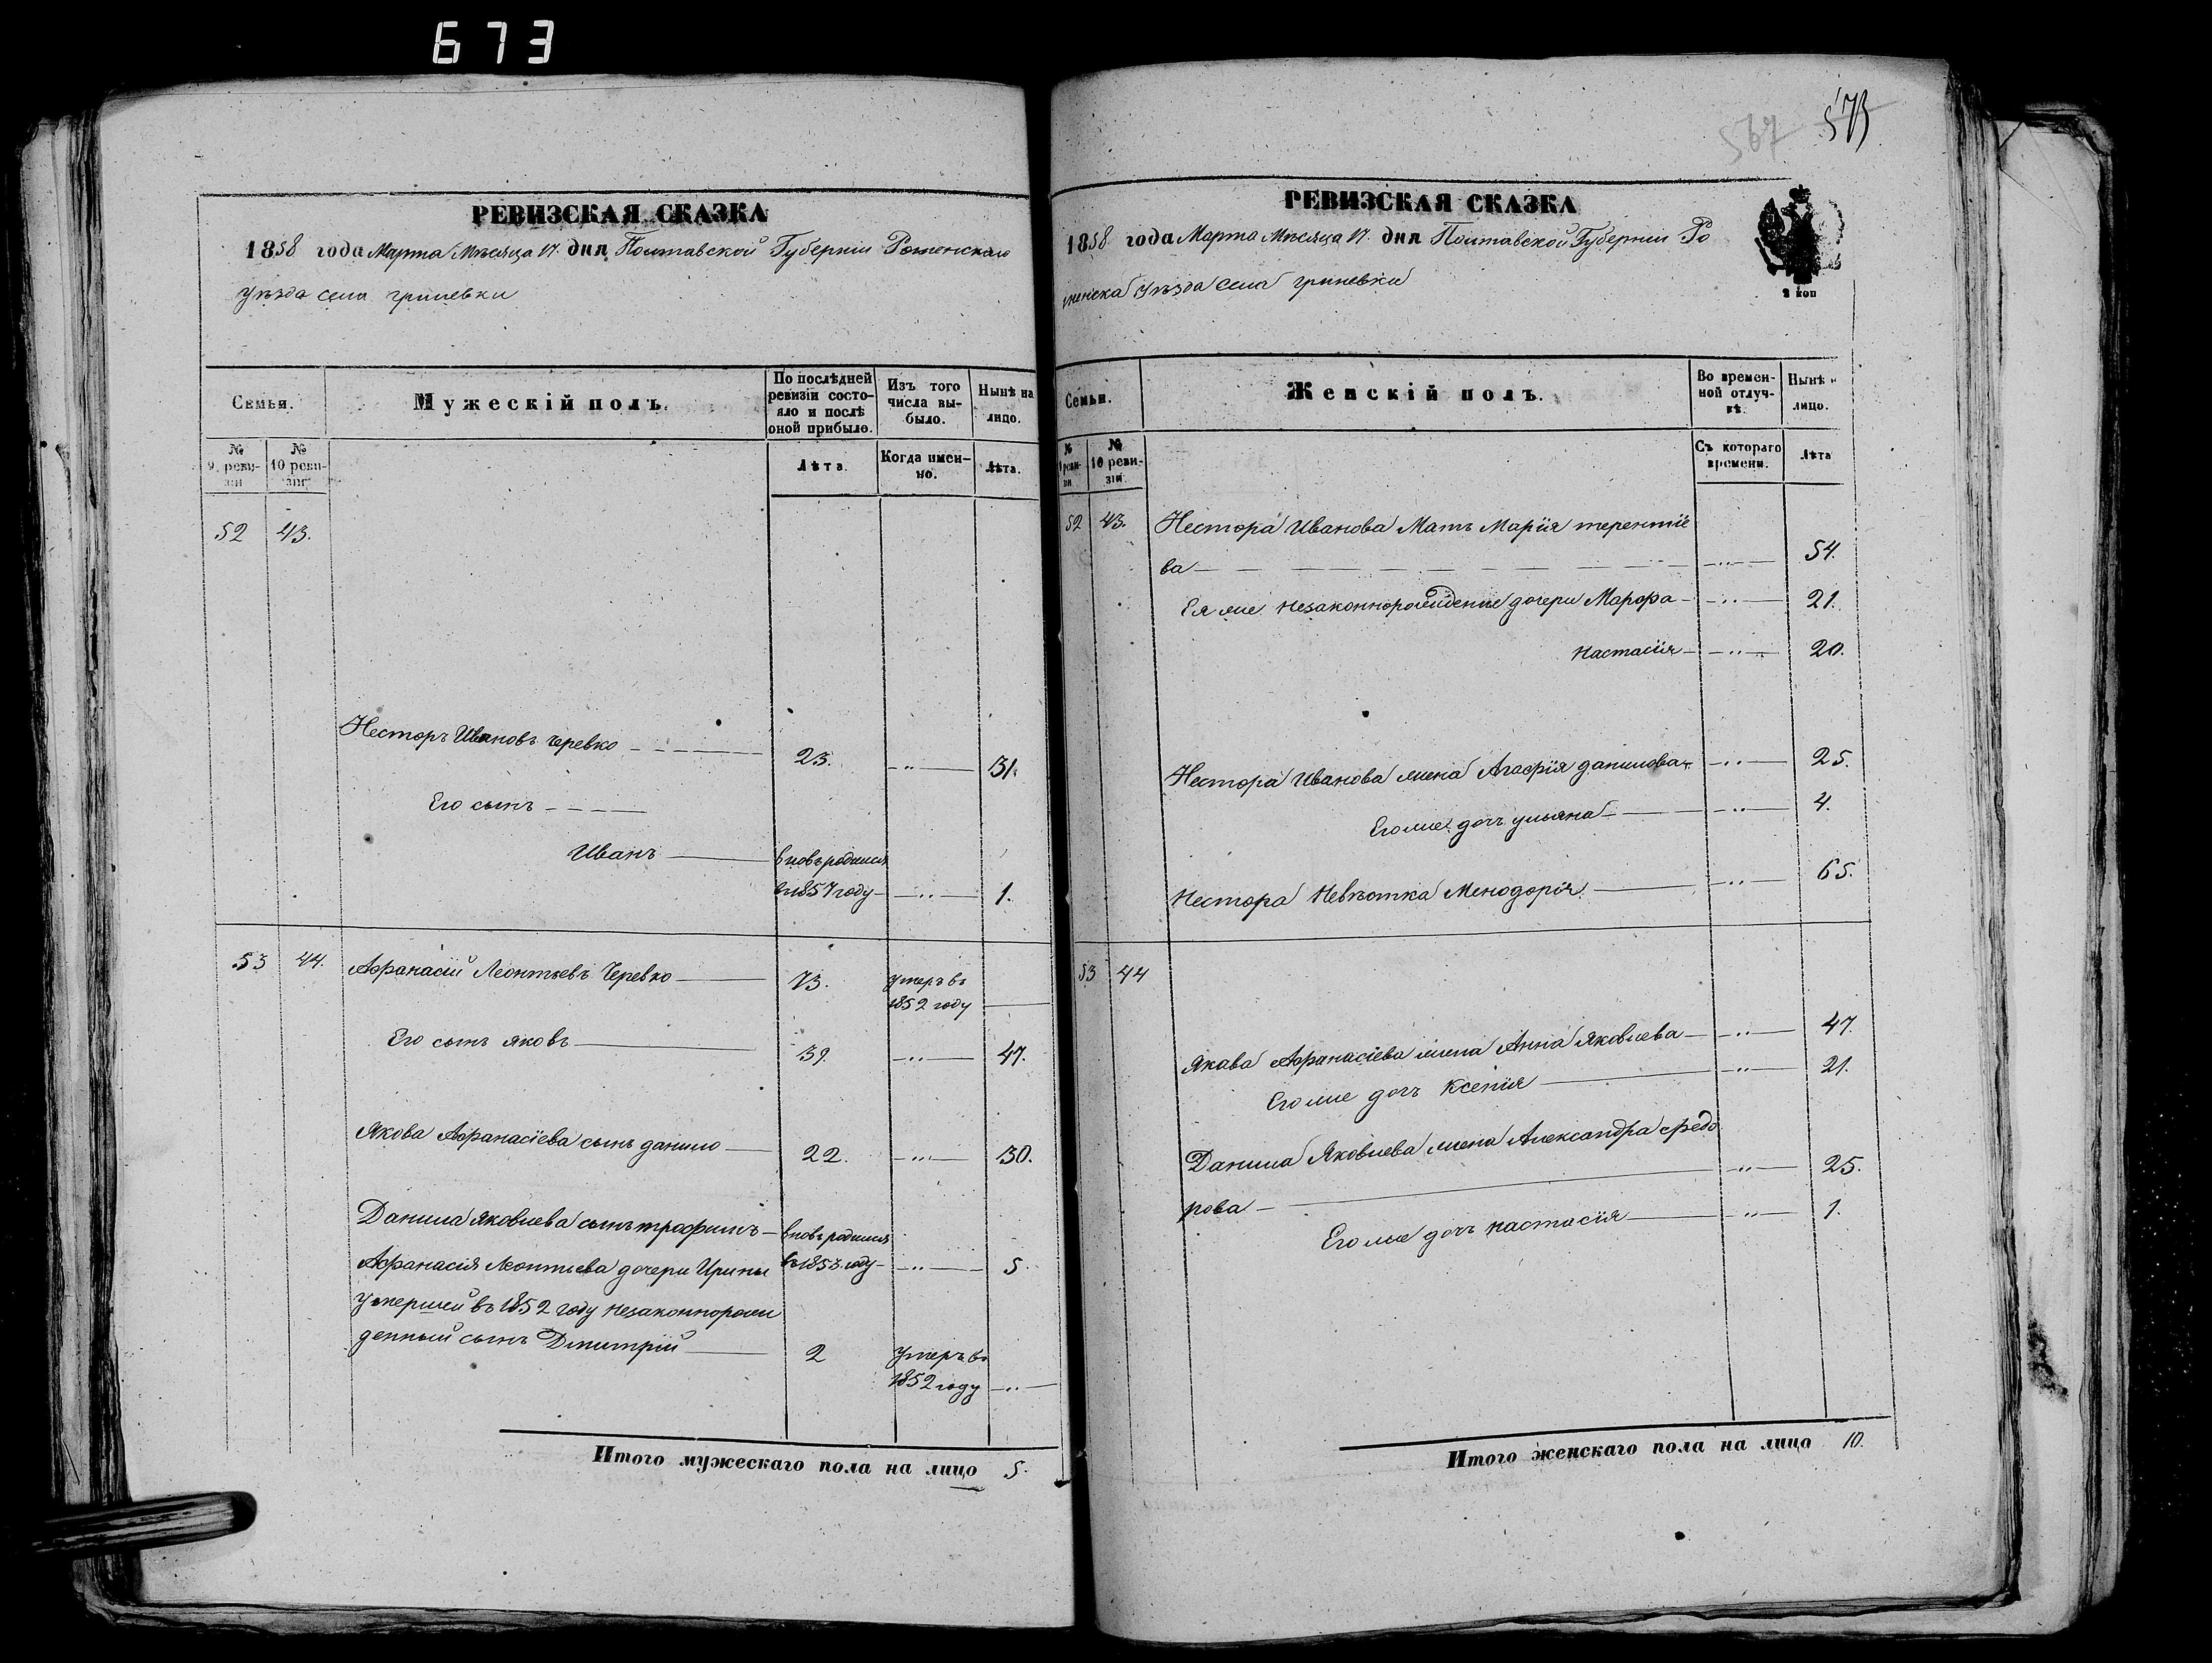 673
567 573
РЕВИЗСКАЯ СКАЗКА
1858 года Марта Мѣсяца 17. дня Полтавской Губерніи Роменскаго
Уѣзда села гриневки
Семьи.
Мужескій полъ.
По послѣдней ревизіи состояло и послѣ оной прибыло.
Изъ того числа выбыло.
Нынѣ на лицо.
№ 9 ревизіи
№ 10 ревизіи
Лѣта.
Когда именно.
Лѣта.
52 43.
Несторъ Ивановъ черевко 23. 31.
Его сынъ
Иванъ вновьродился
въ1857году 1.
53 44. Афанасій Леонтьевъ Черевко 73. Умеръ въ
1852 году
Его сынъ яковъ 39. 47.
Якова Афанасіева сынъ данило 22. 30.
Данила Яковлева сынъ трофимъ вновьродился
въ1853.году 5.
Афанасія Леонтьева дочери Ирины
Умершей въ 1852 году незаконнорож
денный сынъ Дмитрій 2 Умеръ въ
1852 году
Итого мужескаго пола на лицо 5.
РЕВИЗСКАЯ СКАЗКА
1858 года Марта Мѣсяца 17. дня Полтавской Губерніи Ро
менска Уѣзда Села гриневки
2 коп
Семьи.
Женскій полъ.
Во временной отлучкѣ.
Нынѣ н
лицо.
№ 9 ревизіи
№ 10 ревизіи
Съ котораго времени.
Лѣта
52 43. Нестора Иванова Мать Марія терентіе
ва 54.
Ея же незаконнорожденые дочери Марфа 21.
настасія 20.
Нестора Иванова жена Агафія данилова 25.
Егоже дочь ульяна 4.
Нестора Невѣстка Менодорія 65.
53 44
Якава Афанасіева жена Анна Яковлева 47.
Егоже дочь Ксенія 21.
Данила Яковлева жена Александра федо
рова 25.
Егоже дочь настасія 1.
Итого женскаго пола на лицо 10.